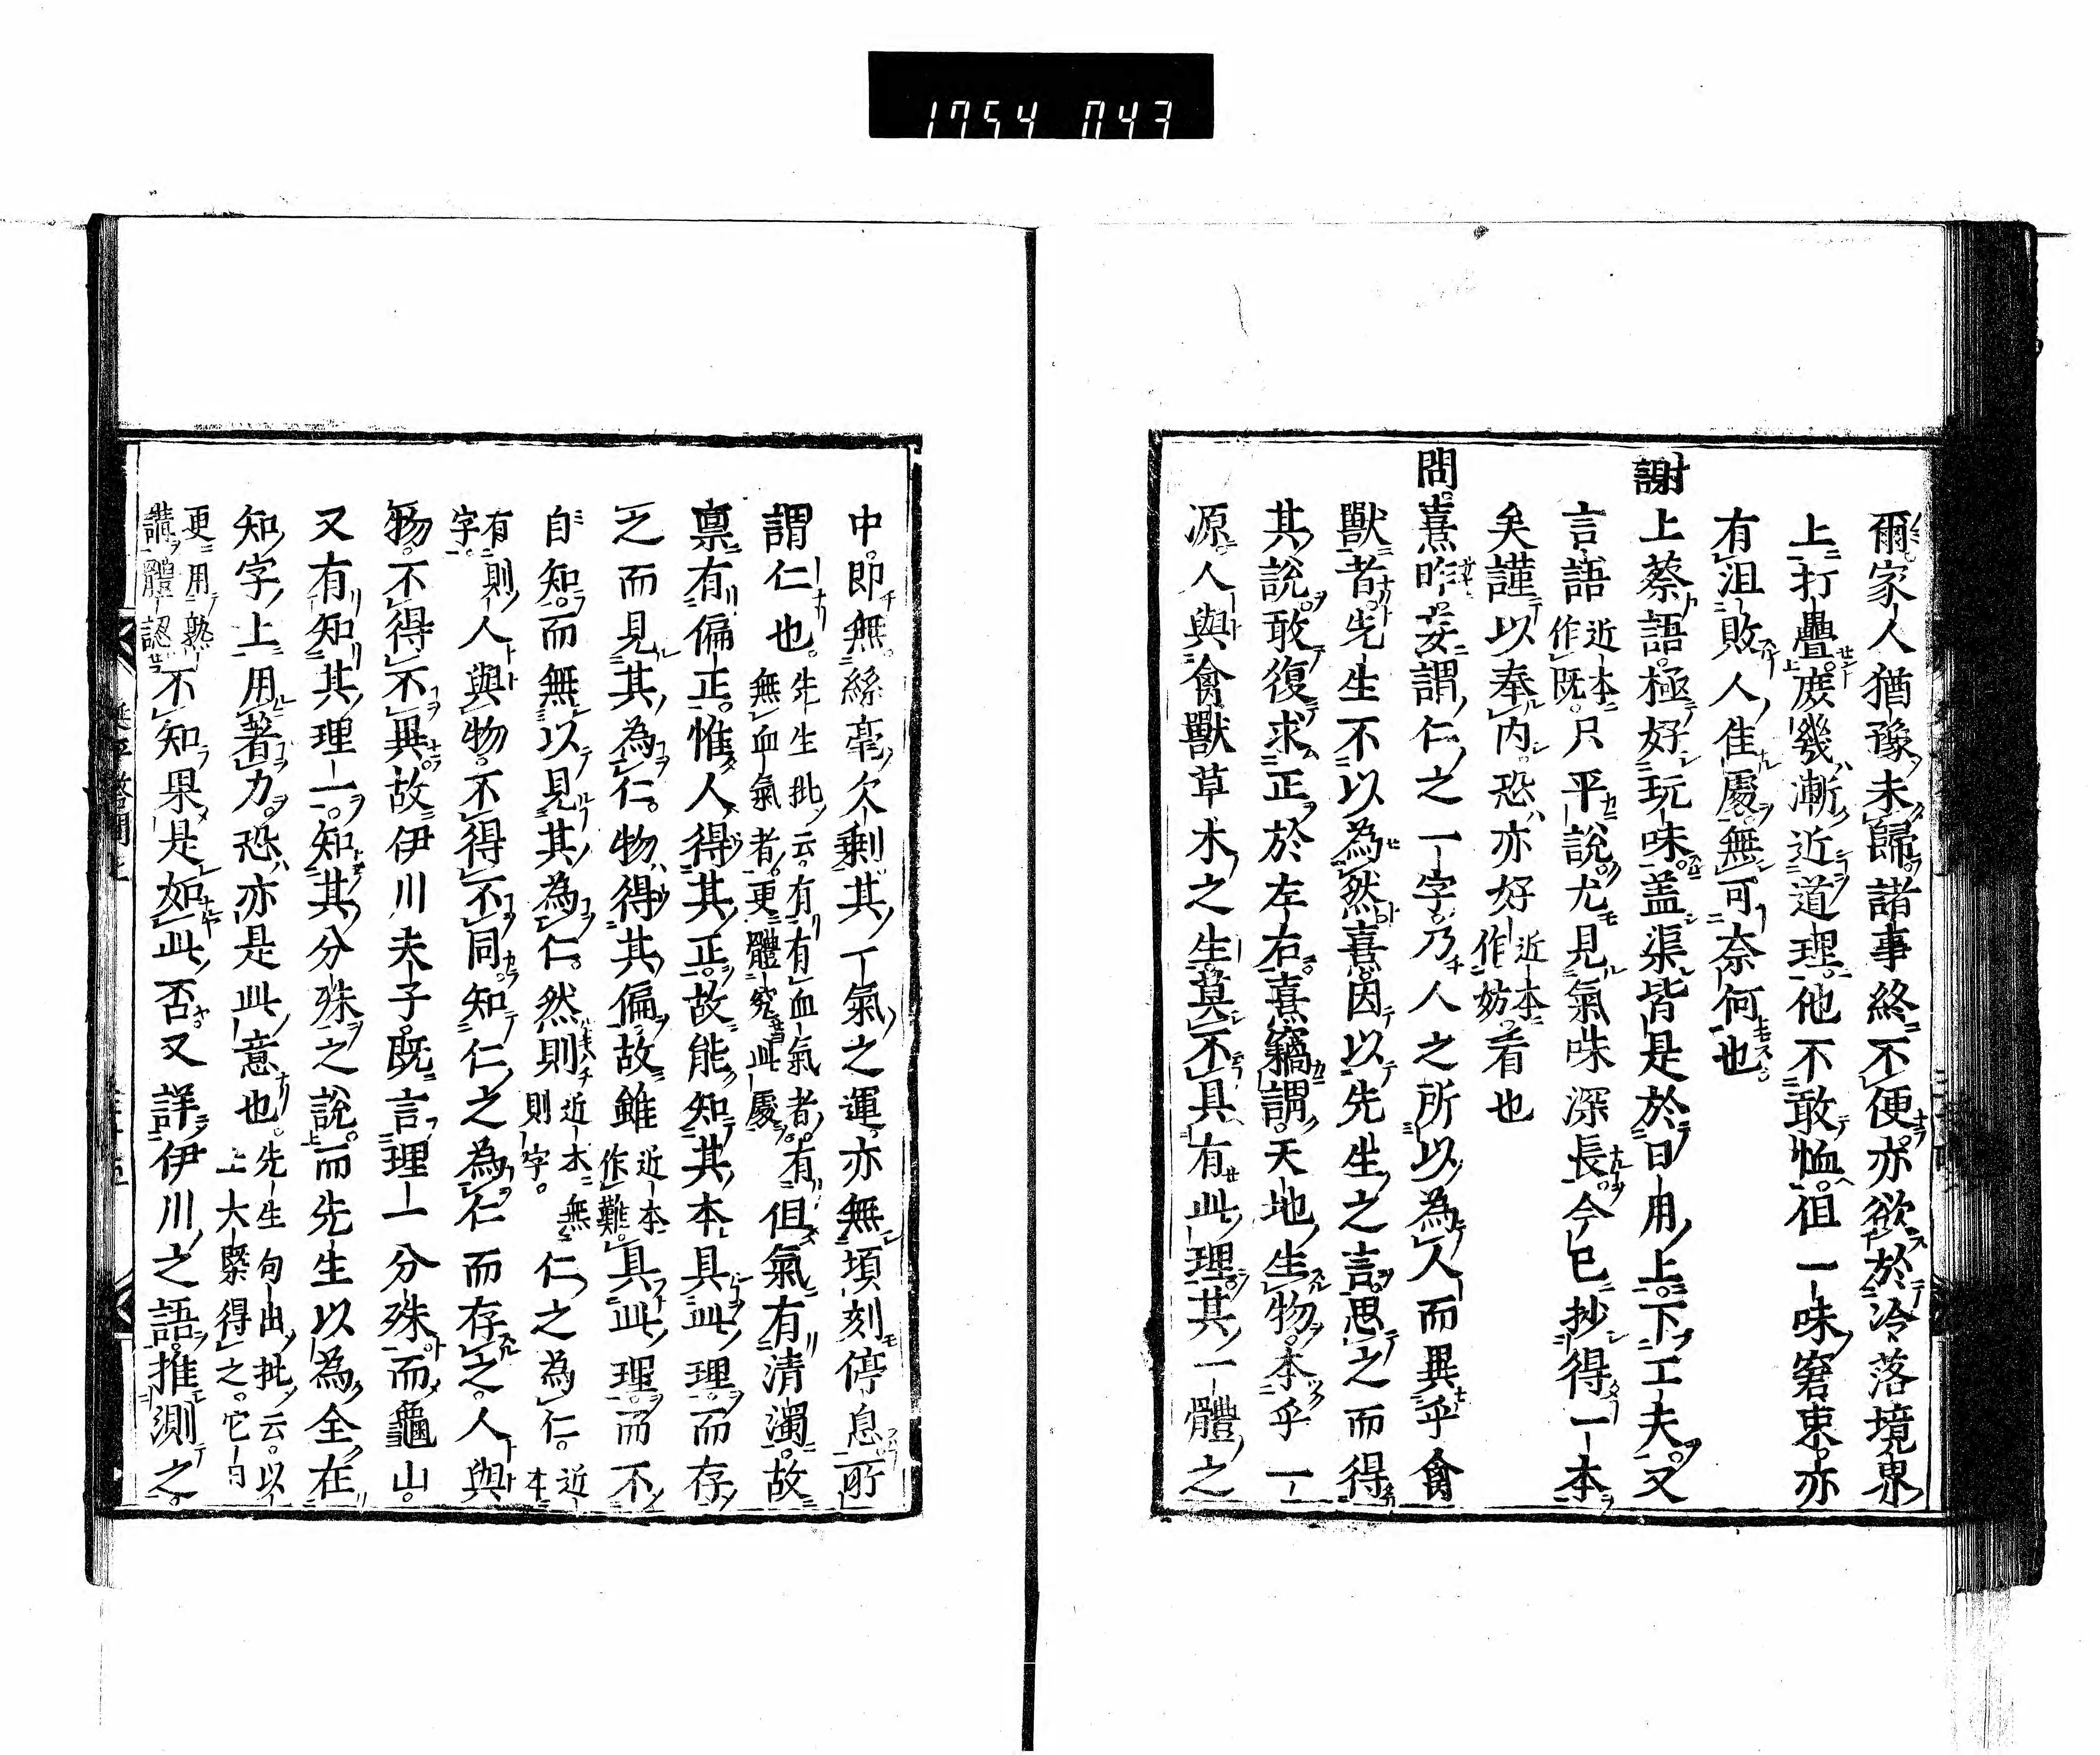 1754 043
爾家人猶豫未歸諸事終不便亦欲於冷落境界
上打疊庶幾漸近道理他不敢恤但一味窘束亦
有沮敗人佳處無可奈何也
謝上蔡語極好玩味盖渠皆是於日用上下工夫又
言語近本作既只平說尤見氣味深長今已抄得一本
矣謹以奉內恐亦好近本作妨看也
問熹昨妄謂仁之一字乃人之所以為人而異乎禽
獸者先生不以為然熹因以先生之言思之而得
其說敢復求正於左右熹竊謂天地生物本乎一
源人與禽獸草木之生莫不具有此理其一體之
中即無絲毫欠剩其一氣之運亦無頃刻停息所
謂仁也先生批云有有血氣者有無血氣者更體究此處但氣有清濁故
禀有偏正惟人得其正故能知其本具此理而存
之而見其為仁物得其偏故雖近本作難具此理而不
自知而無以見其為仁然則近本無則字仁之為仁近本
有則字人與物不得不同知仁之為仁而存之人與
物不得不異故伊川夫子既言理一分殊而龜山
又有知其理一知其分殊之說而先生以為全在
知字上用著力恐亦是此意也先生句出批云以上大槩得之它日
更用熟講體認不知果是如此否又詳伊川之語推測之